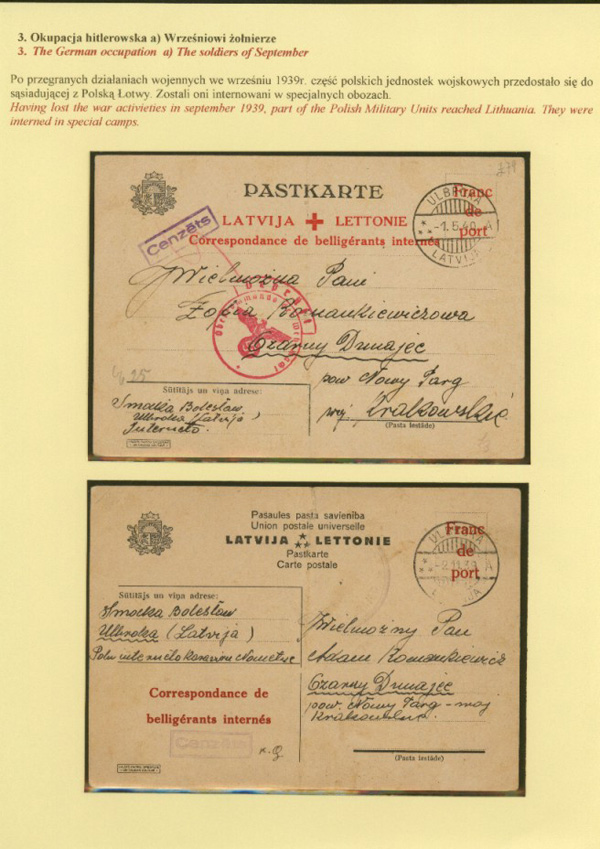 3. Okupacja hitlerowska a) Wrześniowi żołnierze
3. The German occupation a) The soldiers of September
Po przegranych działaniach wojennych we wrześniu 1939r. część polskich jednostek wojskowych przedostało się do
sąsiadującej z Polską Łotwy. Zostali oni internowani w specjalnych obozach.
Having lost the war activieties in september 1939, part of the Polish Military Units reached Lithuania. They were
interned in special camps.
PASTKARTE
LATVIJA + LETTONIE
Correspondance de belligérants internés
Cenzēts
Franc
de
port
ULBROKA
-1.5.40 A
LATVIJA
Geprüft
Oberkommando der Wehrmacht
Wielmożna Pani
Zofia Romankiewiczowa
Czarny Dunajec
pow Nowy Targ
woj. Krakowskie
(Pasta iestāde)
Sūtītājs un viņa adrese:
Smoćka Bolesław
Ulbroka (Latvija)
Internēto.
Pasaules pasta savienība
Union postale universelle
LATVIJA LETTONIE
Pastkarte
Carte postale
Franc
de
port
ULBROKA
LATVIJA
Sūtītājs un viņa adrese:
Smoćka Bolesław
Ulbroka (Latvija)
Poļu internēto karavīru Nometne
Correspondance de
belligérants internés
Cenzēts
Wielmożny Pan
Adam Romankiewicz
Czarny Dunajec
pow. Nowy Targ - woj
Krakowskie.
(Pasta iestāde)